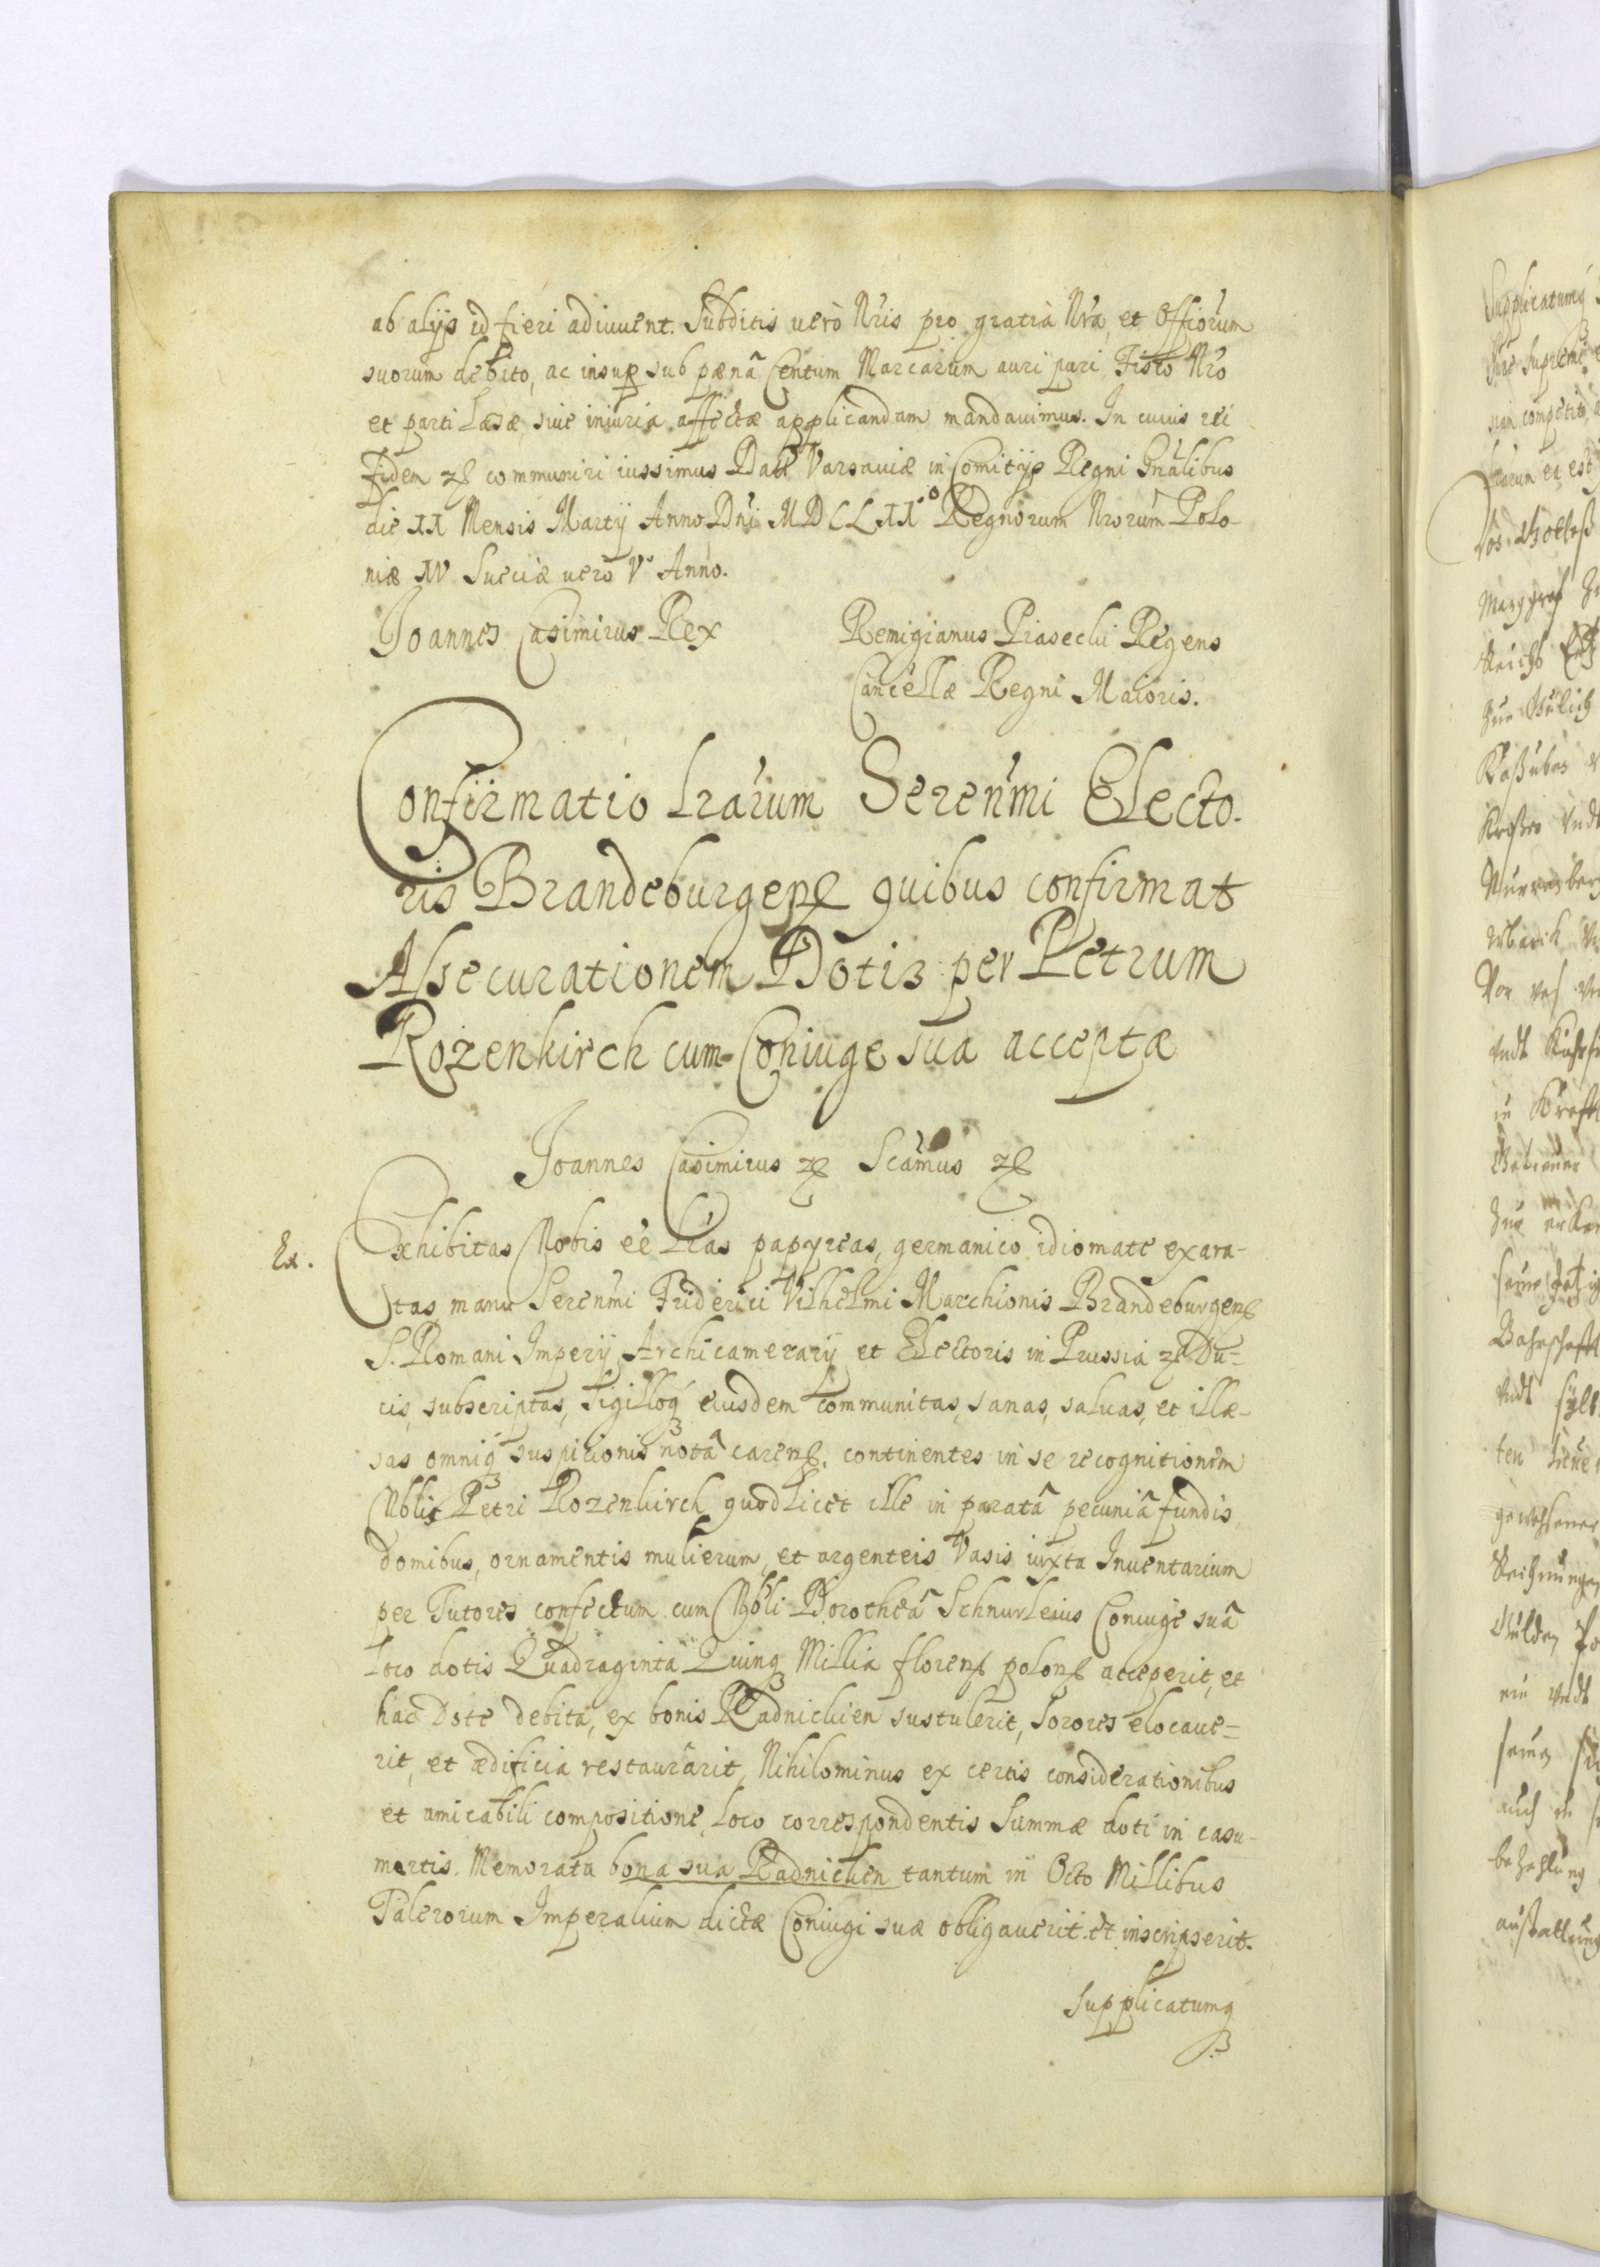 ab alijs id fieri adiuuent. Subditis uerò Nris pro gratia Nra, et Offiorum
suorum debito, ac insup sub pænâ Centum Marcarum auri puri Fisco Nro
et parti læsæ, siue iniuria affectæ applicandam mandauimus. In cuius rei
fidem etc communiri iussimus Datt Varsauiæ in Comitijs Regni Gnalibus
die II Mensis Martij Anno Dni MDCLII° Regnorum Nrorum Polo-
niæ IV Sueciæ uero V° Anno.
Joannes Casimirus Rex
Remigianus Piasecki Regens
Cancellæ Regni Maioris.
Confirmatio Lrarum Serenmi Electo-
ris Brandeburgens quibus confirmat
Assecurationem Dotis per Petrum
Rozenkirch cum Coniuge sua acceptæ
Joannes Casimirus etc Scamus etc
Ex.
Exhibitas Nobis ee Lras papyreas, germanico idiomate exara-
tas, manu Serenmi Friderici Vilhelmi Marchionis Brandeburgens
S. Romani Imperij Archicamerarij et Electoris in Prussia etc Du-
cis, subscriptas, Sigilloq eiusdem communitas, sanas, saluas, et illæ-
sas omniq suspicionis notâ carens. continentes in se recognitionem
Nblis Petri Rozenkirch, quod licet ille in paratâ pecuniâ fundis,
domibus, ornamentis mulierum, et argenteis Vasis iuxta Inuentarium
per Tutores confectum cum Nobli Dorotheâ Schnurleius Coniuge suâ
loco dotis Quadraginta Quinq Millia florens polons acceperit, et
hac Dote debita, ex bonis Radnicken sustulerit, Sorores elocaue-
rit, et ædificia restaurarit, Nihilominus ex certis considerationibus
et amicabili compositione, loco correspondentis Summæ doti in casu
mortis. Memorata bona sua Radnicken tantum in Octo Millibus
Talerorum Imperalium dictæ Coniugi suæ obligauerit et inscripserit.
Supplicatumq